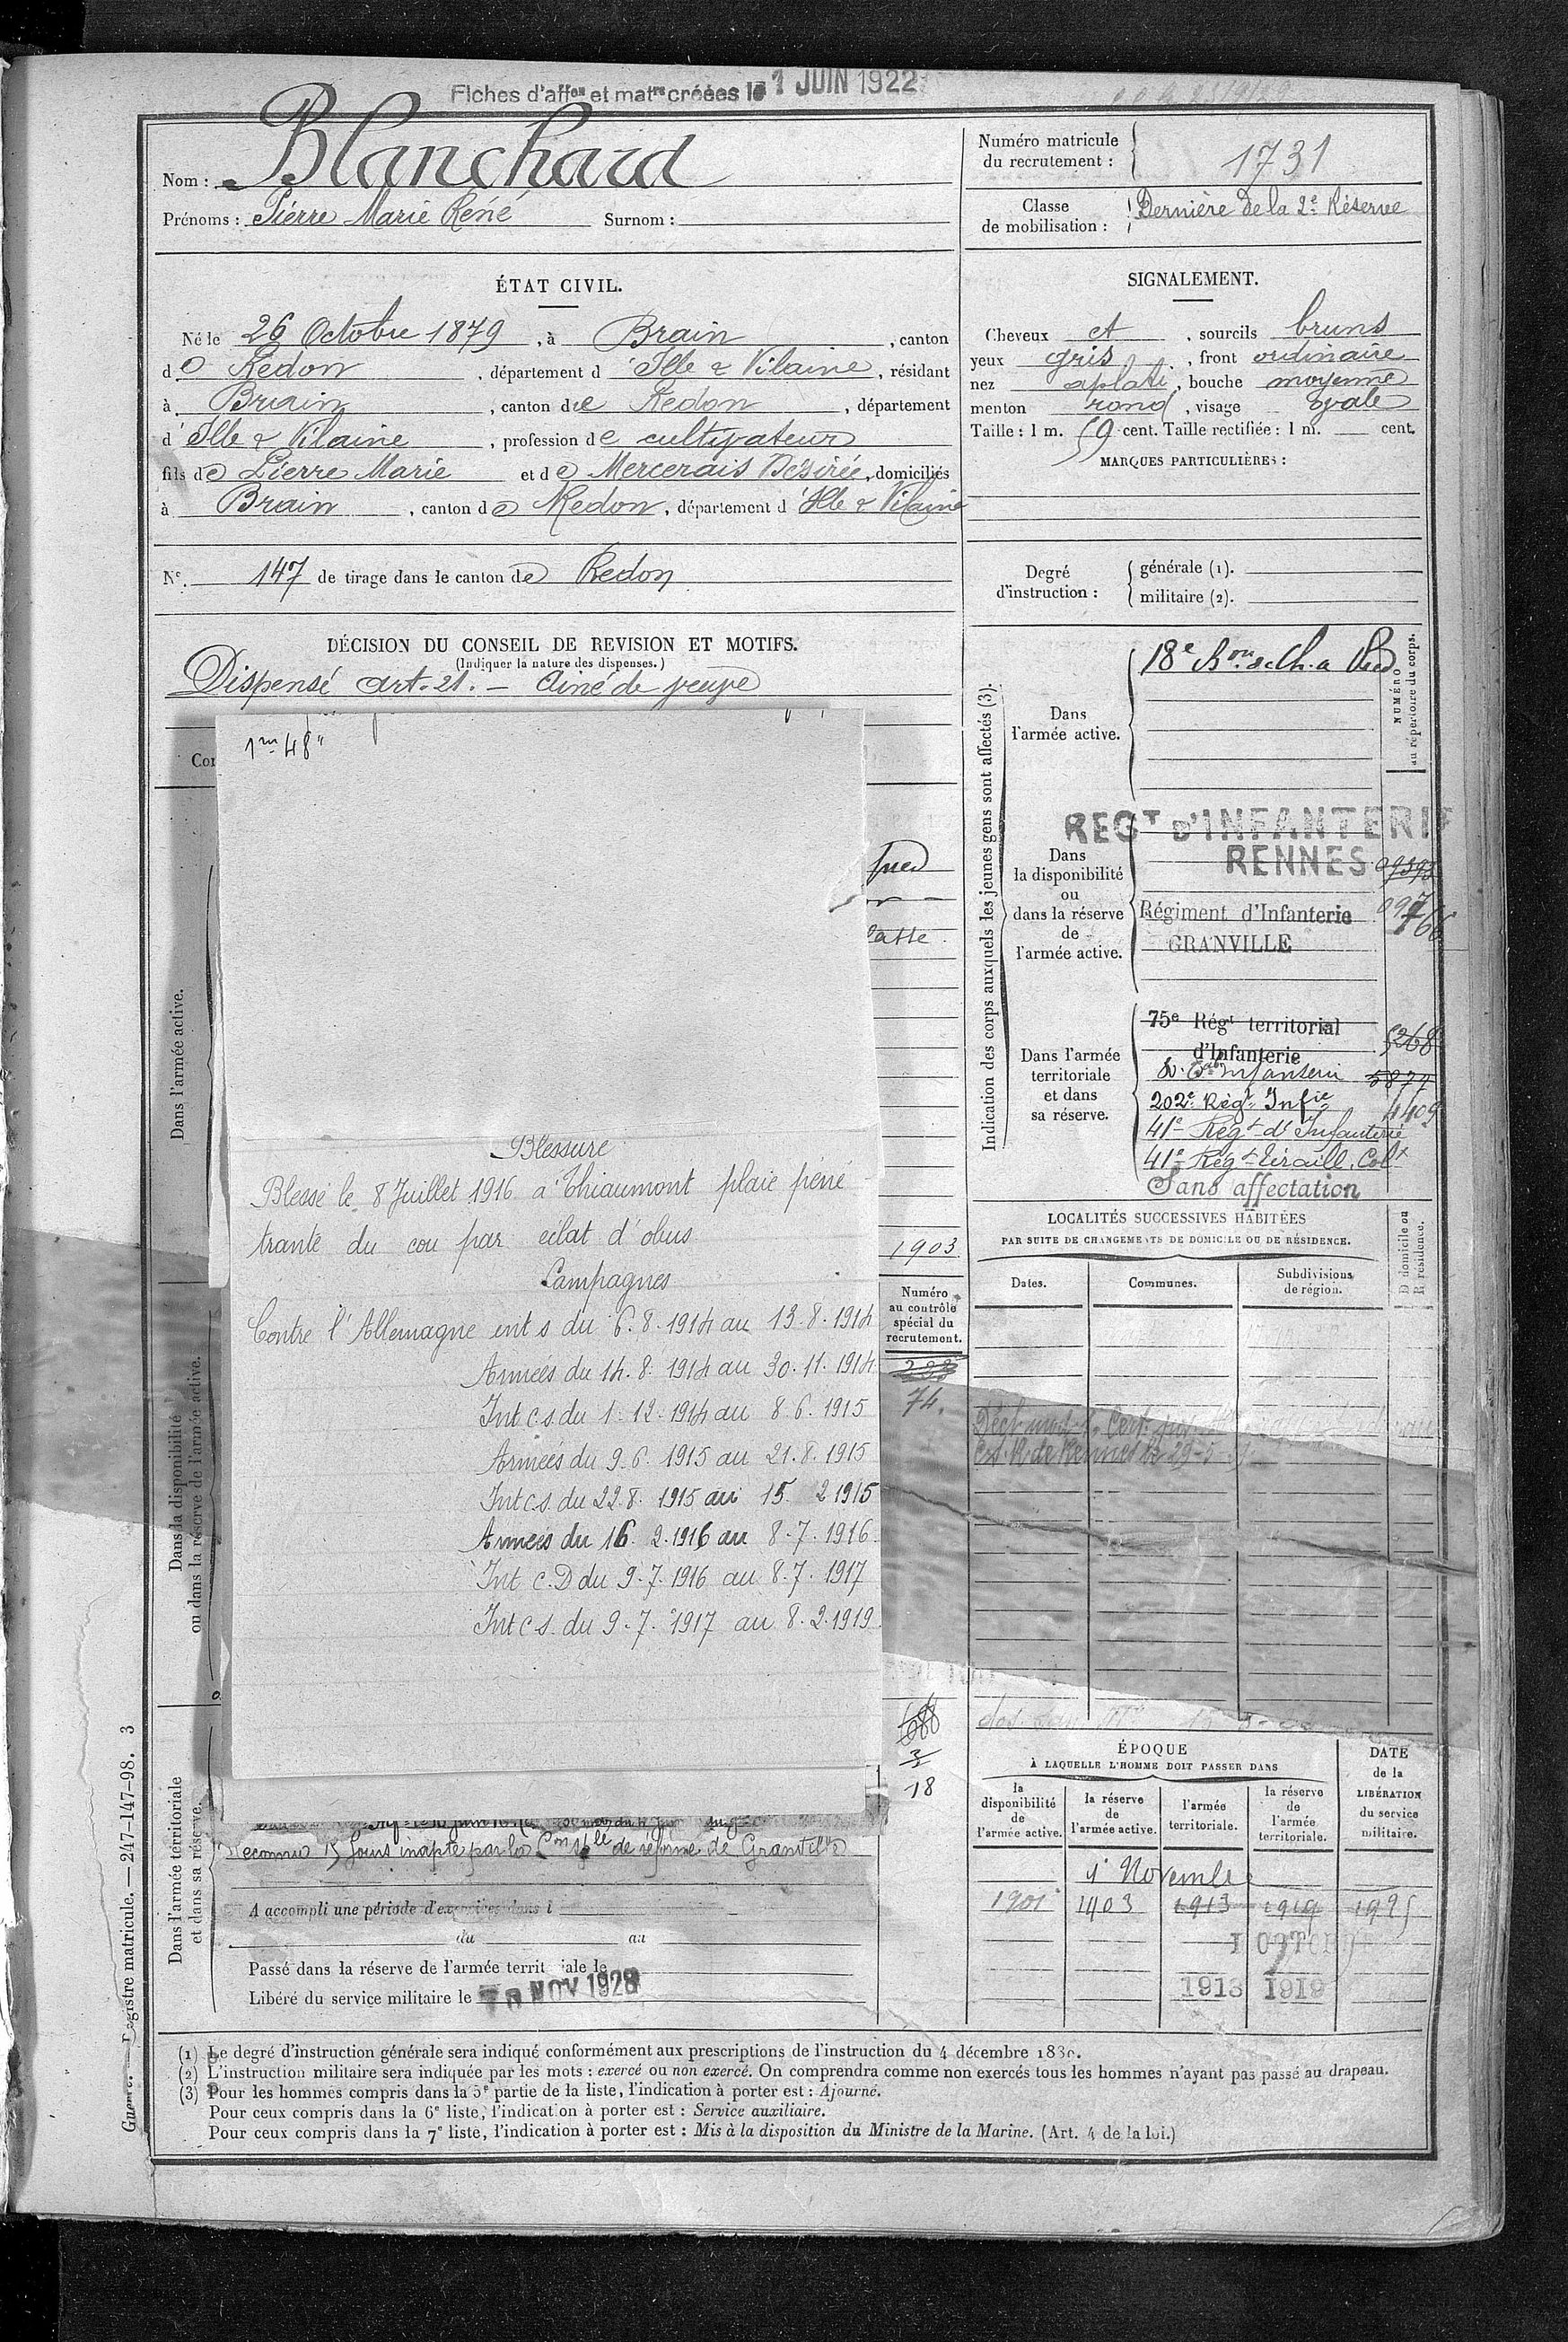 Fiches d'affon et matre créées le 1 JUIN 1922
Nom : Blanchard
Prénoms : Pierre Marie René Surnom :
Numéro matricule du recrutement : 1731
Classe de mobilisation : Dernière de la 2e Réserve
ÉTAT CIVIL.
Né le 26 Octobre 1879, à Brain, canton
de Redon, département d'Ille & Vilaine, résidant
à Brain, canton de Redon, département
d'Ille & Vilaine, profession de cultivateur
fils de Pierre Marie et de Mercerais Désirée, domiciliés
à Brain, canton de Redon, département d'Ille & Vilaine
No. 147 de tirage dans le canton de Redon
SIGNALEMENT.
Cheveux et, sourcils bruns
yeux gris, front ordinaire
nez aplati, bouche moyenne
menton rond, visage ovale
Taille : 1 m. 59 cent. Taille rectifiée : 1 m. cent.
MARQUES PARTICULIÈRES :
Degré d'instruction : générale (1).
militaire (2).
DÉCISION DU CONSEIL DE REVISION ET MOTIFS.
(Indiquer la nature des dispenses.)
Dispensé art. 21. — Ainé de veuve
1m 48"
Blessure
Blessé le 8 Juillet 1916 à Thiaumont plaie péné
trante du cou par éclat d'obus
Campagnes
Contre l'Allemagne int s du 6.8.1914 au 13.8.1914
Armées du 14.8.1914 au 30.11.1914
Int c.s du 1.12.1914 au 8.6.1915
Armées du 9.6.1915 au 21.8.1915
Int c.s. du 22.8.1915 au 15.2 1915
Armées du 16.2.1916 au 8.7.1916
Int c.D du 9.7.1916 au 8.7.1917
Int c s. du 9.7.1917 au 8.2.1919
Dans l'armée active.
Dans la disponibilité
ou dans la réserve de l'armée active.
Dans l'armée territoriale
et dans sa réserve.
1903
Numéro
au contrôle
spécial du
recrutement.
74.
18
Reconnu 15 jours inapte par la Con Sple de réforme de Granville
A accompli une période d'exercices dans l
du au
Passé dans la réserve de l'armée territoriale le
Libéré du service militaire le NOV 1928
Indication des corps auxquels les jeunes gens sont affectés (3).
NUMÉRO
au répertoire du corps.
Dans
l'armée active.
18e Bon de Ch. à Pied
Dans
la disponibilité
ou
dans la réserve
de
l'armée active.
REGT D'INFANTERIE
RENNES
Régiment d'Infanterie
GRANVILLE
Dans l'armée
territoriale
et dans
sa réserve.
75e Régt territorial
d'Infanterie 5268
Infanterie 5877
202e Régt Infie 4409
41e Régt d'Infanterie
41e Régt Tiraill. Colx
Sans affectation
LOCALITÉS SUCCESSIVES HABITÉES
PAR SUITE DE CHANGEMENTS DE DOMICILE OU DE RÉSIDENCE.
Dates. Communes. Subdivisions de région.
D domicile ou
R résidence.
ÉPOQUE
À LAQUELLE L'HOMME DOIT PASSER DANS
DATE
de la
LIBÉRATION
du service
militaire.
la disponibilité de l'armée active.
la réserve de l'armée active.
l'armée territoriale.
la réserve de l'armée territoriale.
1er Novembre
1901 1903 1913 1919 1925
1913 1919
(1) Le degré d'instruction générale sera indiqué conformément aux prescriptions de l'instruction du 4 décembre 1889.
(2) L'instruction militaire sera indiquée par les mots : exercé ou non exercé. On comprendra comme non exercés tous les hommes n'ayant pas passé au drapeau.
(3) Pour les hommes compris dans la 5e partie de la liste, l'indication à porter est : Ajourné.
Pour ceux compris dans la 6e liste, l'indication à porter est : Service auxiliaire.
Pour ceux compris dans la 7e liste, l'indication à porter est : Mis à la disposition du Ministre de la Marine. (Art. 4 de la loi.)
Registre matricule. — 247-147-98. 3